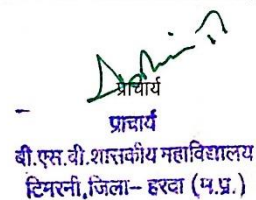 प्राचार्य
प्राचार्य
बी.एस.बी.शासकीय महाविद्यालय
टिमरनी,जिला– हरदा (म.प्र.)